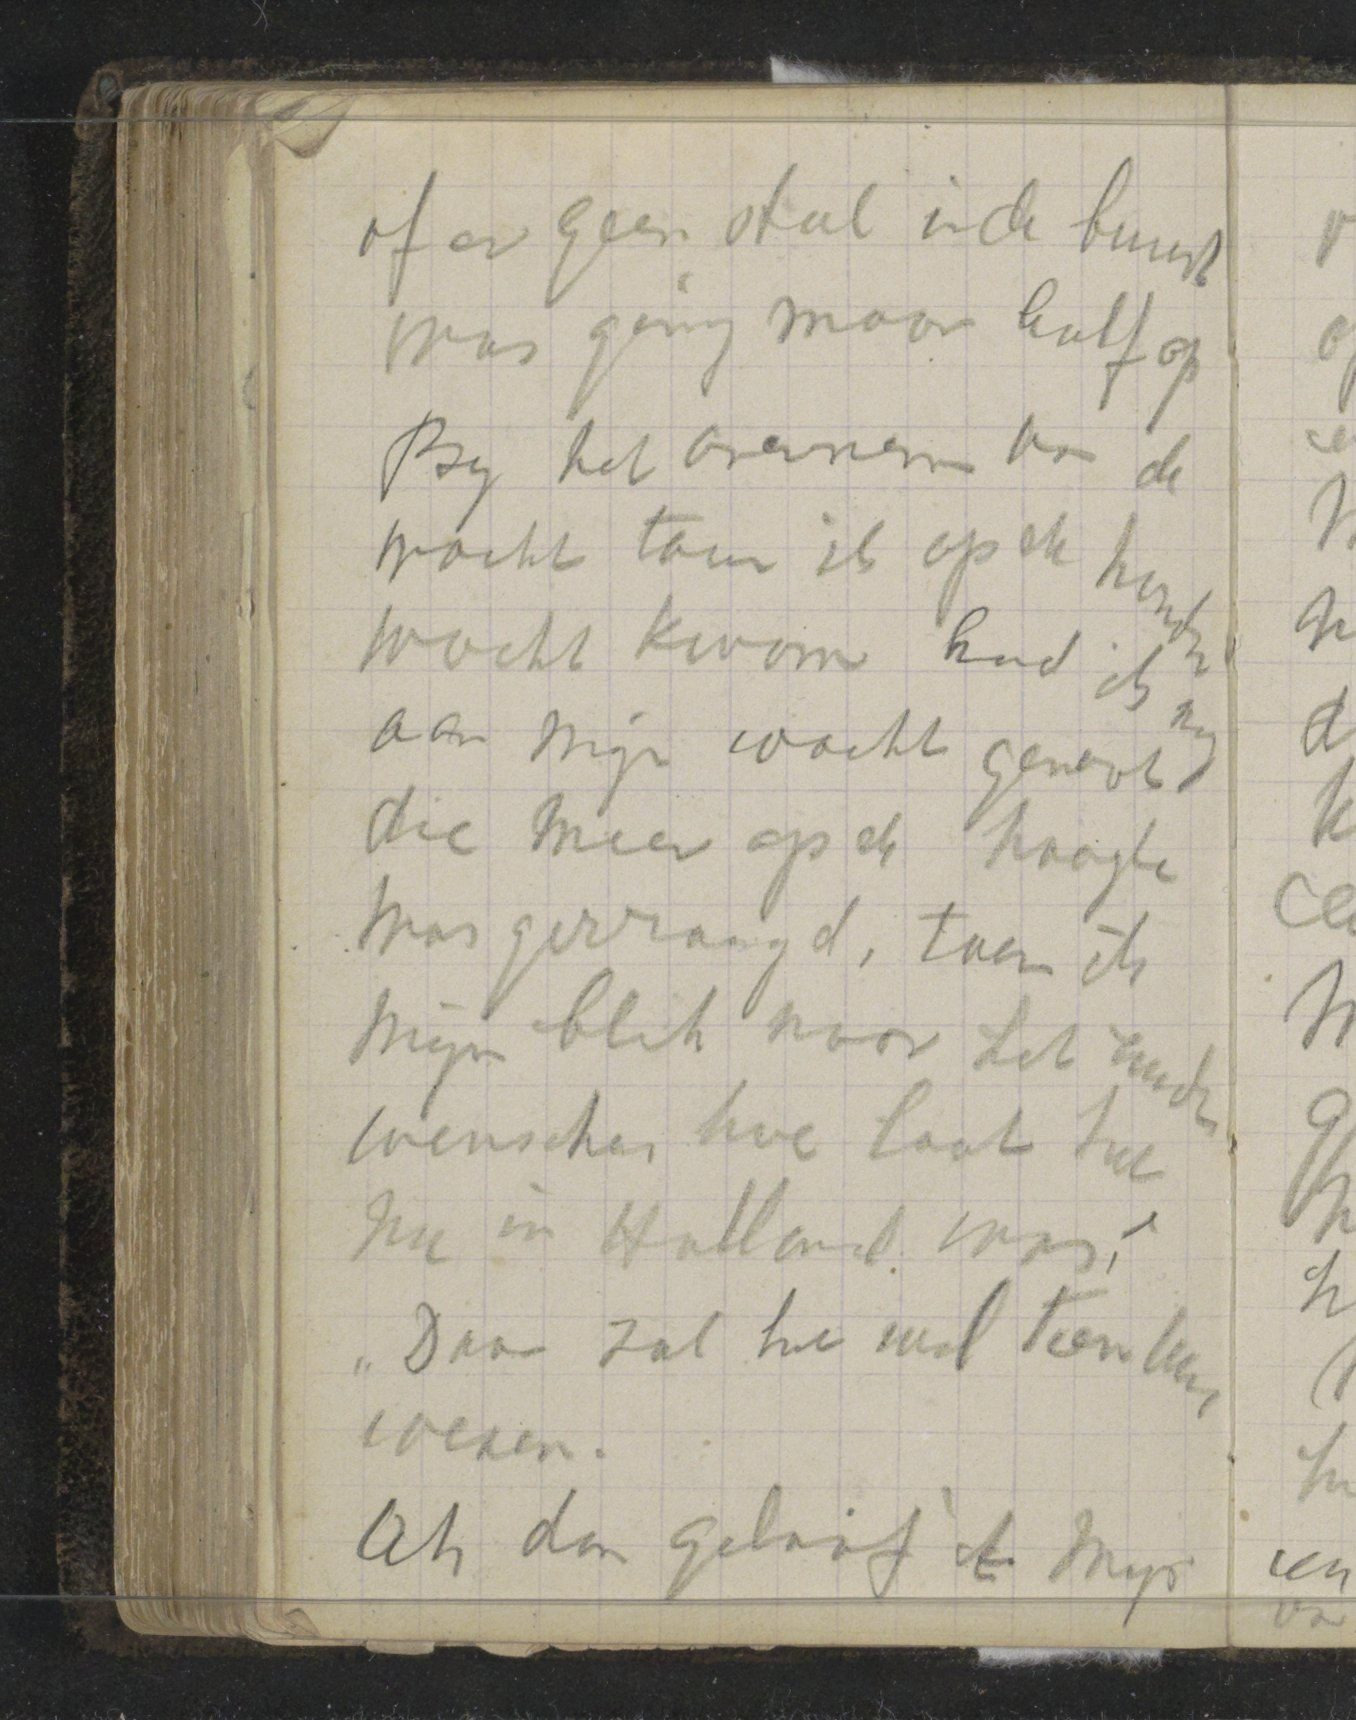 of er geen stal in de buurt
was ging maar half op
Bij het overnemen van de
wacht toen ik op de honde
wacht kwam had ik nog
aan mijn wacht genoot
die meer op de hoogte
was gevraagd, toen ik
mijn blik naar het
wenschen hoe laat het
nu in Holland was,
„Daar zal het wel tien uur
wezen.
Ah dan geloof ik mijn